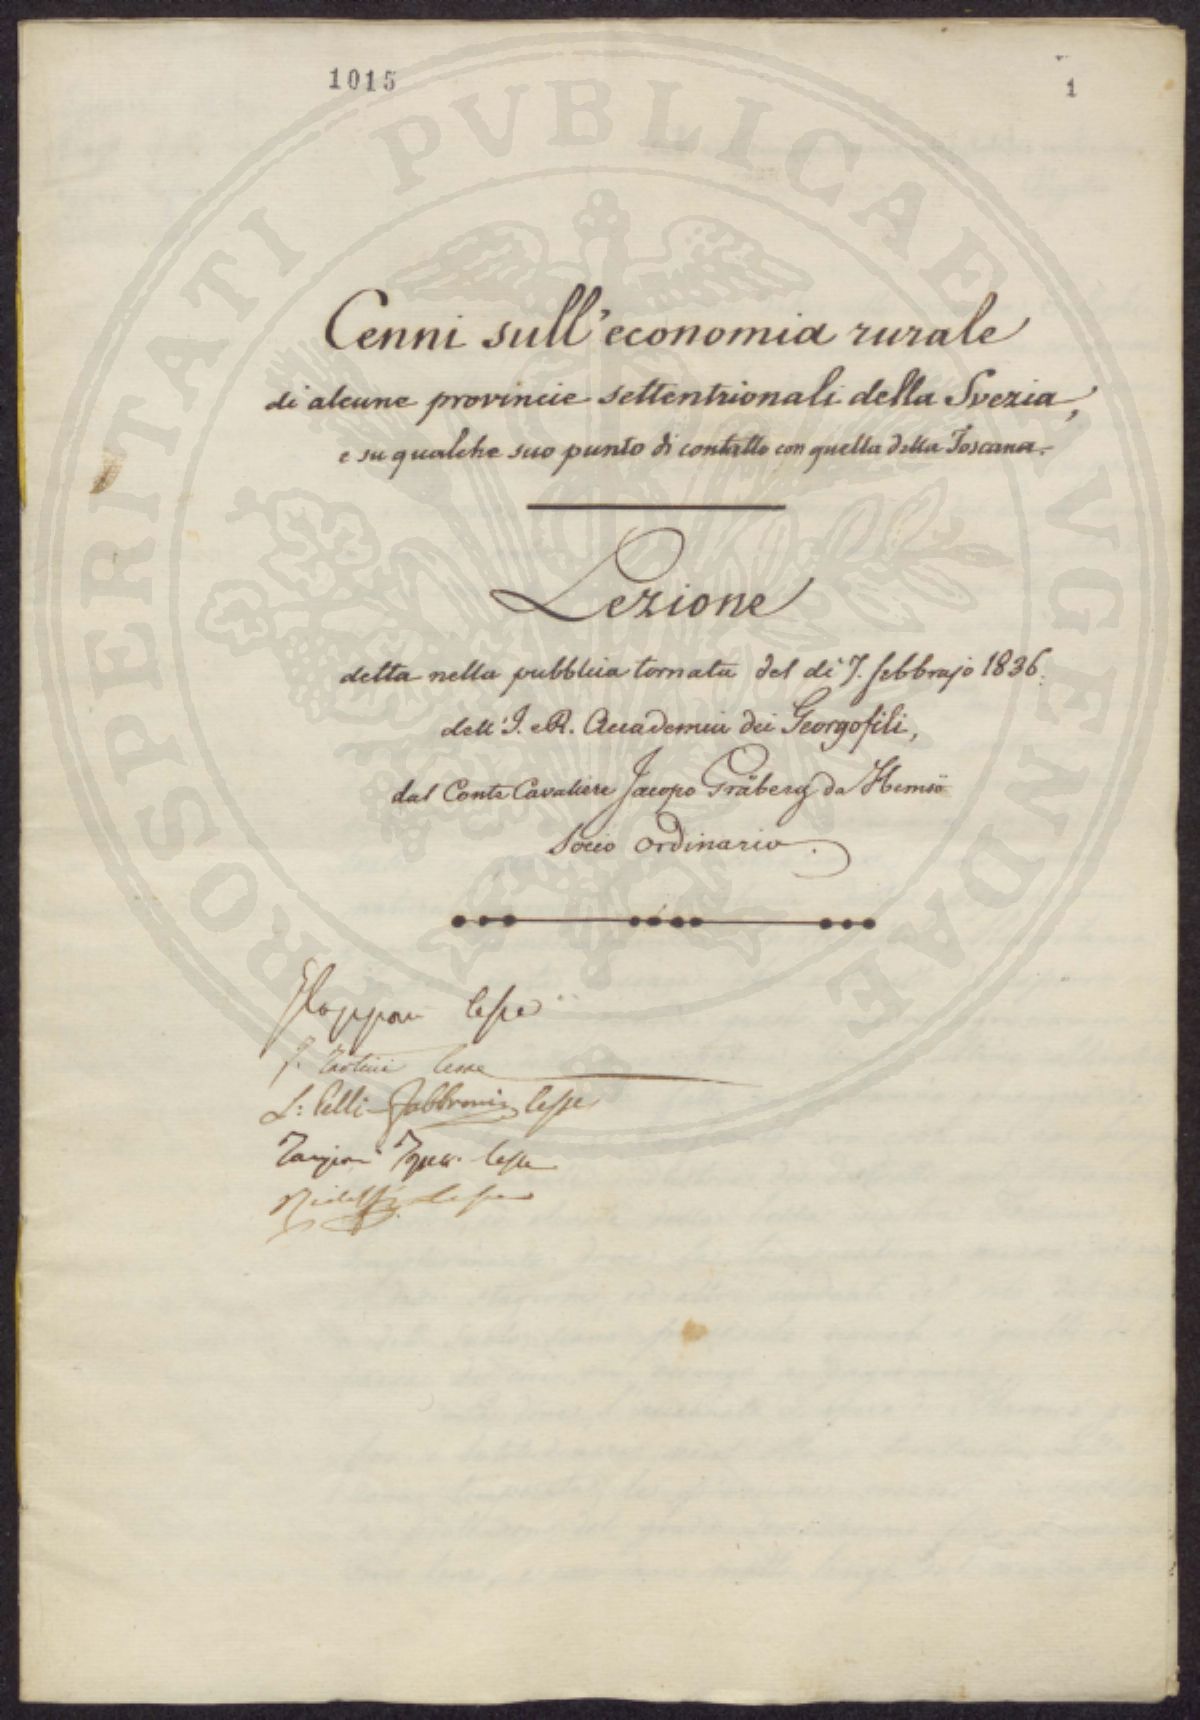 1015
1
PROSPERITATI PVBLICAE AVGENDAE
Cenni sull'economia rurale
di alcune provincie settentrionali della Svezia,
e su qualche suo punto di contatto con quella della Toscana.
Lezione
detta nella pubblica tornata del dì 7. febbrajo 1836.
dell' I. e R. Accademia dei Georgofili,
dal Conte Cavaliere Jacopo Gräberg da Hemsö
Socio Ordinario.
lesse
lesse
L: Pelli-Fabbroni lesse
Targioni lesse
Ridolfi lesse